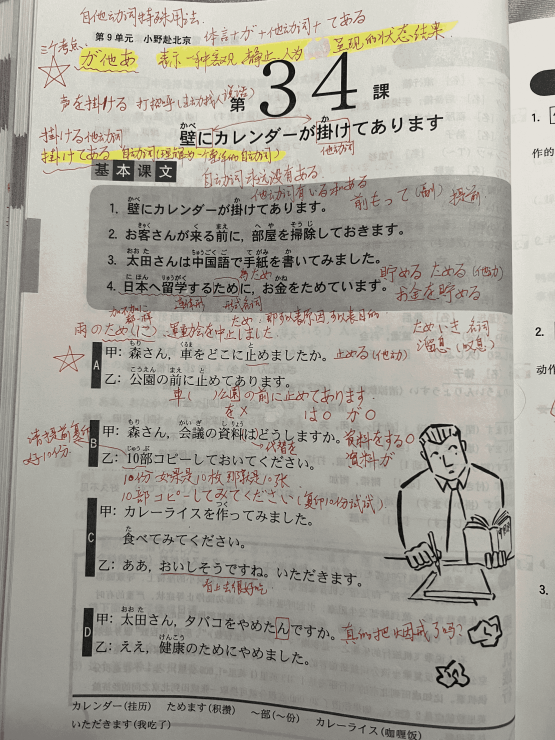 自他动词特殊用法.
第9单元 小野赴北京
体言+が+他动词+てある
三个考点.
が他あ 表示一种客观、静止、人为 呈现的状态结果.
声を掛ける 打招呼(主动找人说话)
第34課
掛ける他动词
壁にカレンダーが掛けてあります
掛けてある
他动词
基本课文
自动词永远没有ある
他动词有いる和ある
前もって(副) 提前
1. 壁にカレンダーが掛けてあります。
2. お客さんが来る前に, 部屋を掃除しておきます。
3. 太田さんは中国語で手紙を書いてみました。
4. 日本へ留学するために, お金をためています。
貯める ためる(他力)
お金を貯める
ため 即可以表原因,可以表目的
雨のため(に) 运动会を中止しました
ためいき 名词
溜息(叹息)
A
甲: 森さん, 車をどこに止めましたか。 止める(他动)
乙: 公園の前に止めてあります。
車( 公園の前に止めてあります
を× は○ が○
B
甲: 森さん, 会議の資料はどうしますか。 資料をする○
乙: 10部コピーしておいてください。 資料が
请提前复印好10份
10份 如果是10枚 那就是10张
10部コピーしてみてください(复印10份试试)
C
甲: カレーライスを作ってみました。
食べてみてください。
乙: ああ, おいしそうですね。いただきます。
看上去很好吃
D
甲: 太田さん, タバコをやめたんですか。 真的把烟戒了吗?
乙: ええ, 健康のためにやめました。
カレンダー(挂历) ためます(积攒) ～部(～份) カレーライス(咖喱饭)
いただきます(我吃了)
1.
作的
2.
动作
3.